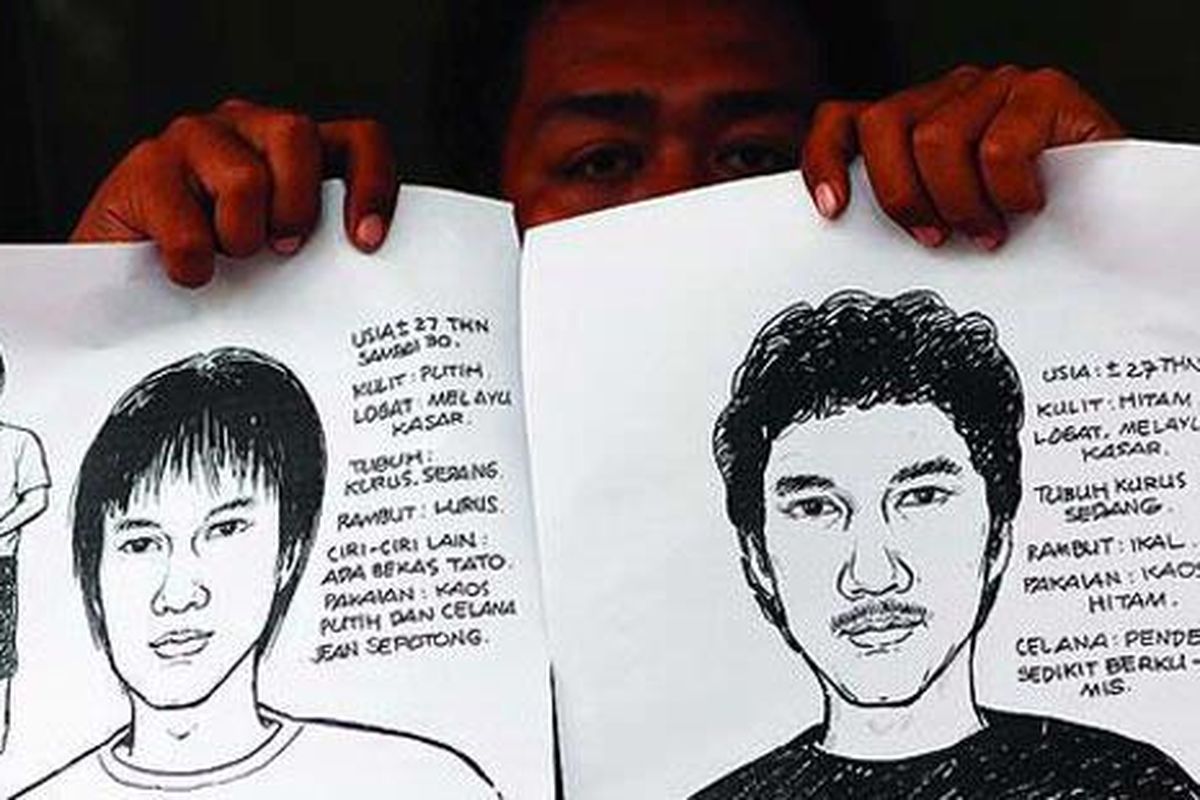 USIA ± 27 THN
SAMPAI 30.
KULIT : PUTIH.
LOGAT. MELAYU
KASAR.
TUBUH :
KURUS. SEDANG.
RAMBUT : LURUS.
CIRI-CIRI LAIN :
ADA BEKAS TATO.
PAKAIAN : KAOS
PUTIH DAN CELANA
JEAN SEPOTONG.
USIA : ± 27 THN
KULIT : HITAM
LOGAT. MELAYU
KASAR.
TUBUH KURUS
SEDANG.
RAMBUT : IKAL.
PAKAIAN : KAOS
HITAM.
CELANA : PENDE
SEDIKIT BERKU-
MIS.